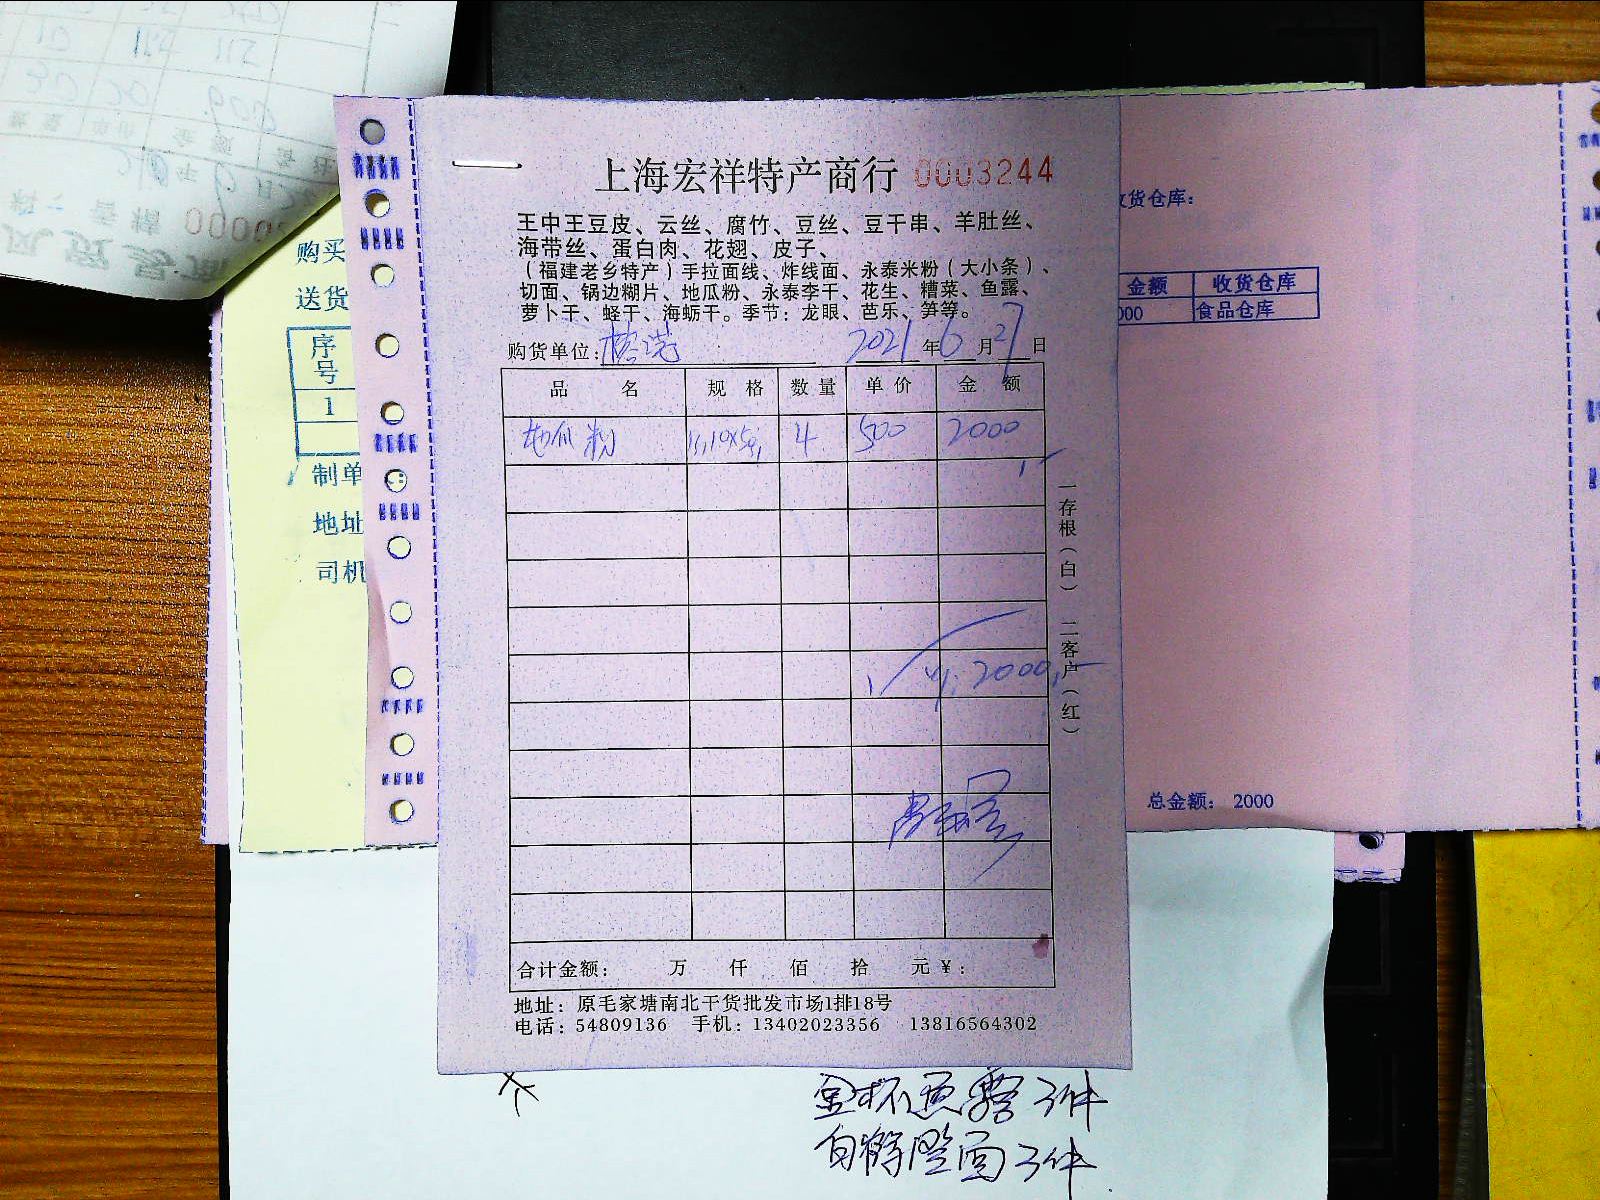 上海宏祥特产商行 0003244
王中王豆皮、云丝、腐竹、豆丝、豆干串、羊肚丝、
海带丝、蛋白肉、花翅、皮子、
（福建老乡特产）手拉面线、炸线面、永泰米粉（大小条）、
切面、锅边糊片、地瓜粉、永泰李干、花生、糟菜、鱼露、
萝卜干、蛏干、海蛎干。季节：龙眼、芭乐、笋等。
购货单位： 2021年6月27日
品名 规格 数量 单价 金额
地瓜粉 4 500 2000
¥:2000
合计金额： 万 仟 佰 拾 元¥：
地址：原毛家塘南北干货批发市场1排18号
电话：54809136 手机：13402023356 13816564302
一存根（白） 二客户（红）
购买
送货
序号
1
制单
地址
司机
收货仓库：
金额 收货仓库
000 食品仓库
总金额： 2000
3件
3件